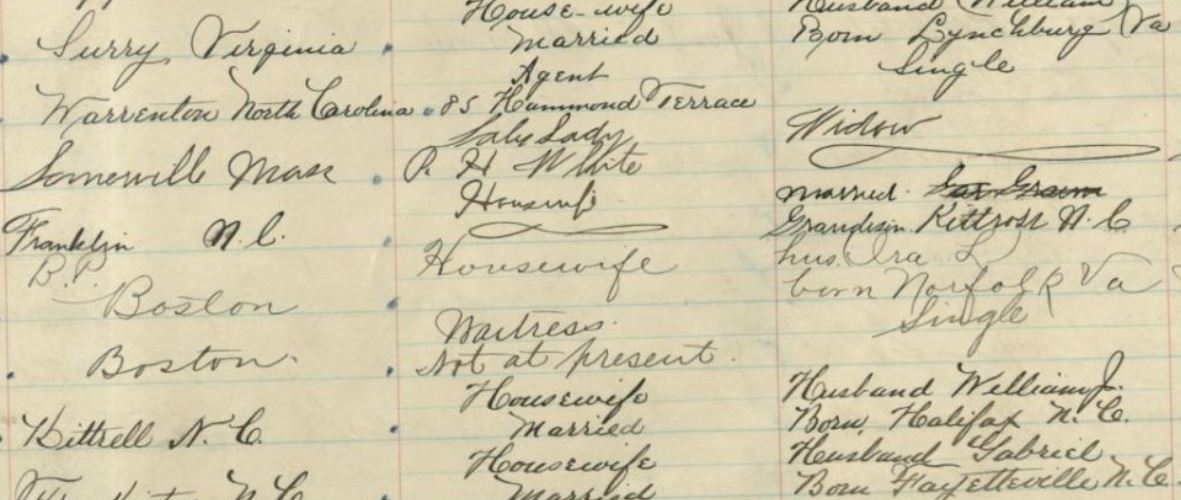 House-wife Husband William
Surry, Virginia Married Born Lynchburg Va
Agent Single
Warrenton North Carolina 85 Hammond Terrace
Saleslady Widow
Somerville Mass P. H. White
Housewife Married.
Franklin N.C. Grandison Kittrell N.C.
B.P. Housewife hus. Ira L
Boston born Norfolk Va
Waitress. Single
Boston. Not at present.
Housewife Husband William J.
Kittrell N.C. Married Born, Halifax N.C.
Housewife Husband Gabriel
N.C. Married Born Fayetteville N.C.